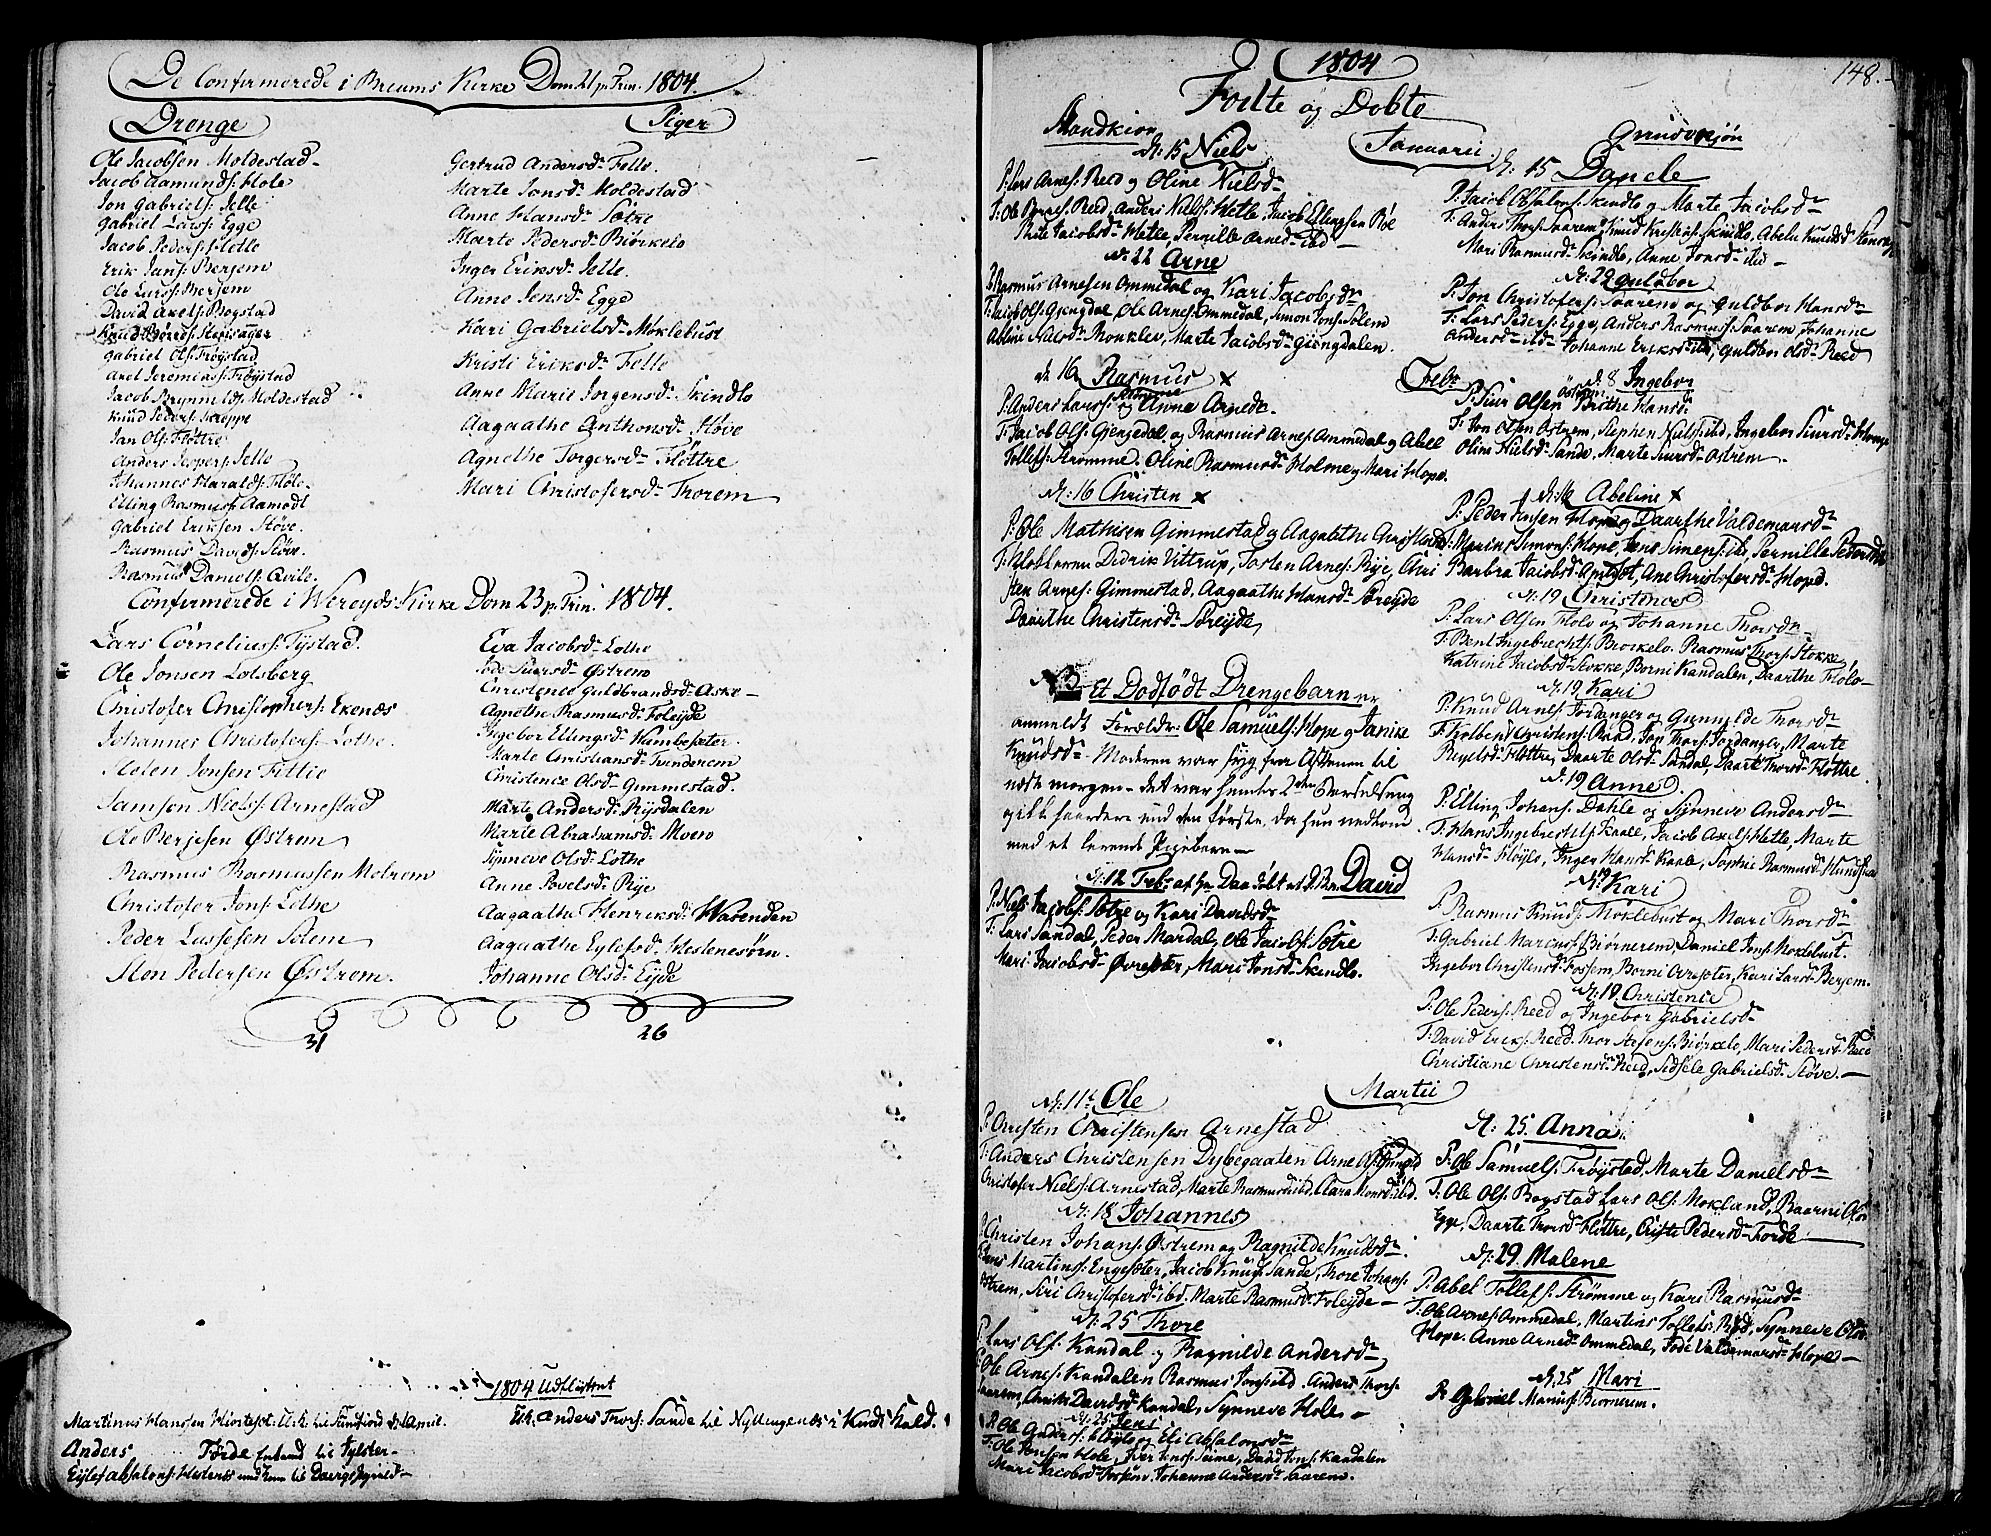 De Confirmerede i Breums Kirke Dom. 21 p. Trin. 1804.
Drenge
Ole Jacobsen Moldestad
Jacob Aamunds: Hole
Jon Gabriels: Felle
Gabriel Larss: Egge
Jacob Peders: Hetle
Erik Jans: Berjem
Ole Larss: Berjem
David Axels: Bogstad
Knud Børeds:
Gabriel Ols: Frøystad
Axel Jeremiass: Frøystad
Jacob Brynnelds: Moldestad
Knud Peders: Skrøppe
Jan Ols: Fløttre
Anders Jespers: Felle
Johannes Haralds: Fløte
Elling Rasmuss: Aamodt
Gabriel Eriksen Støve
Rasmus Davids: Støve
Rasmus Daniels: Qvile
Piger
Gertrud Andersd: Felle.
Marte Jonsd: Moldestad
Anne Hansd: Søtre
Marte Pedersd: Biørkelo
Inger Eriksd: Felle.
Anne Jensd: Egge
Kari Gabrielsd: Møklebust
Kristi Eriksd: Felle
Anne Marie Jørgensd: Skindlo
Aagaathe Anthonsd: Støve
Agnethe Torgersd: Fløttre
Mari Christofersd: Thorem
Confirmerede i Wereyds Kirke Dom 23 p. Trin. 1804.
Lars Corneliuss: Tystad.
Ole Jonsen Lotsberg
Christofer Christophers: Ekenæs
Johannes Christofers: Lothe.
Steen Jonsen Fittie
Samson Niels: Arnestad
Ole Berjesen Østrem
Rasmus Rasmussen Molrem
Christofer Jons: Lothe
Peder Lassesen Solem
Sten Pedersen Østrem.
Eva Jacobsd: Lothe
Siursd: Østrem
Christence Guldbrandsd: Aske
Agnethe Rasmusd: Foleyde
Ingebor Ellingsd: Wambeseter.
Marte Christiansd: Tvinderem
Christence Olsd: Gimmestad.
Marte Andersd: Rysdalen
Marie Abrahamsd: Moen
Synneve Olsd: Lothe
Anne Povelsd: Rye
Aagaathe Henriksd: Warenden
Aagaathe Eylefsd: Hestenesøren.
Johanne Olsd: Eyde
31
26
1804 Udflyttet
Martinus Hansen til Sundfiord
Anders Førde til Jylster
Eylef Absalons: Hestenes
Anders Thors: Sande til
1804
148.
Fødte og Døbte
Mandkion
Januarii
d: 15 Niels
P: Lars Arnes: Reed og Oline Nielsd:
T: Ole Reed, Anders Niels: Hetle, Jacob Ellingsen Røe
Jacobsd: Hetle, Pernille Arned: ibd
d: 22 Arne
P: Rasmus Arnesen Ommedal og Kari Jacobsd:
T: Jacob Ols: Gjengdal, Ole Arnes: Ommedal, Simon Jons: Solem
Abline Nielsd: Monklev, Marte Jacobsd: Giengdalen.
d: 16 Rasmus x
P: Anders Larss: Strømme og Anna Arnedr.
T: Jacob Ols: Gjengedal, og Rasmus Arnes: Ommedal og Abel
Tollefs: Strømme. Oline Rasmusd: Holme og Mari Hope.
d: 16 Christen x
P: Ole Mathisen Gimmestad og Aagathe
T: Didrik Vittrup, Torsten Arnes: Rye, Chri
sten Arnes: Gimmestad, Aagaathe Hansd: Søreyde
Daarthe Christensd: Søreyde,
Et Dødfødt Drengebarn er
anmeldt Forældr: Ole Samuels: Hope og Janike
Knudsd: Moderen var syg fra Aftenen til
næste morgen - det var hendes 2den Barselseng
gikk haardere end den første, da hun nedkom
med et levende Pigebarn
d: 12 Febr David
P: Niels Jacobs: Søtre og Kari Davidsd:
T: Lars Sandal, Peder Mardal, Ole Jacobs: Søtre
Mari Jacobsd: Øvreseter, Mari Jonsd: Skindlo.
d: 15 Dande
P: Jacob Absalons: Skindlo og Marte Jacobsd:
T: Anders Thors: Saarem, Knud Skindlo, Abelu Knudsd:
Mari Rasmusd: Skindlo, Anne Jonsd: ibd
d: 22 Guldbor
P: Jon Christofers: Saarem og Guldbor Hansd:
T: Lars Peders: Egge, Anders Rasmuss: Saarem, Johanne
Andersd: ibd: Johanne Eriksd: ibd, Guldbor Olsd: Reed
Febr
d. 8 Ingebor
P: Siur Olsen Østrem Birthe Hansd:
T: Jon Olsen Østrem, Stephen Niels: ibd, Ingebor Siursd: Hope
Oline Nielsd: Sande, Marte Siursd: Østrem.
d: 16 Abeline x
P: Peder Hope og Daarthe Valdemarsd:
T: Marius Simons: Hope, Jens Simens: ib: Pernille Pedersd:
Barbra Jacobsd: Ane Christofersd: Hope.
d: 19 Christence
P: Lars Olsen Flølo og Johanne Thorsd:
T: Bent Ingebrechts: Biørkelo. Rasmus Thors: Stokke,
Katrine Jacobsd: Stokke, Børni Kandalen, Daarthe Flølo
d: 19 Kari
P: Knud Arnes: Jordanger og Gunnilde Thorsd:
T: Kolben Christens: Reed, Jon Thors: Jordanger, Marte
Fløttre, Daarte Olsd: Sandal, Daarte Thorsd: Fløttre.
d: 19 Anne
P: Elling Johans: Dahle og Synneve Andersd:
T: Hans Ingebrets: Kaale, Jacob Axels: Hetle, Marte
Hansd: Fløylo, Inger Hansd: Kaale, Sophie Rasmusd:
d: 19 Kari
P: Rasmus Knuds: Møklebust og Mari Thorsd:
T: Gabriel Marcuss: Biørnerem, Daniel Jons: Moklebust.
Ingebor Christensd: Fossem, Børni Øvreseter, Kari Larsd: Berjem.
d: 19 Christence
P: Ole Peders: Reed og Ingebor Gabrielsd:
T: David Eriks: Reed. Thor Stefens: Biørkelo, Mari Pedersd: Reed
Christiane Christensd: Reed, Sidsele Gabrielsd: Støve.
Martii
d: 11t Ole
P: Christen Christensen Arnestad
T: Anders Christensen Dybegaaten Arne
Christofer Niels: Arnestad, Marte Rasmusd: ibd, Clara Monsd: ibd.
d: 18 Johannes
P: Christen Johans: Østrem og Ragnilde Knudsd:
T: Martins: Engeseter, Jacob Knuds: Sande, Thore Johans:
Østrem, Siri Christofersd: ibd. Marte Rasmusd: Foleyde
d: 25 Thore
P: Lars Ols: Kandal og Ragnilde Andersd:
T: Ole Arnes: Kandalen Rasmus Jons: ibd. Anders Thors:
Saarem, Davidsd: Kandal, Synneve Hole
d: 25 Jens
P: Ole Anders: Fløylo og Eli Absalonsd:
T: Ole Jensen Hole, Iver Jons: Seime, David Jons: Kandalen
Mari Jacobsd: Fossem. Johanne Andersd: Saarem.
d: 25. Anna
P: Ole Samuels: Frøystad, Marte Danielsd:
T: Ole Ols: Bogstad Lars Ols: Mokland, Baarni
Egge, Daarte Thorsd: Fløttre, Pedersd: Førde
d: 29. Malene
P: Abel Tollefs: Strømme og Kari Rasmusd:
T: Ole Arnes: Ommedal, Martins Tollefs: Synneve
Hope. Anne Arned: Ommedal, Valdemarsd: Hope
d: 25 Mari
P: Gabriel Marcus: Biørnerem.